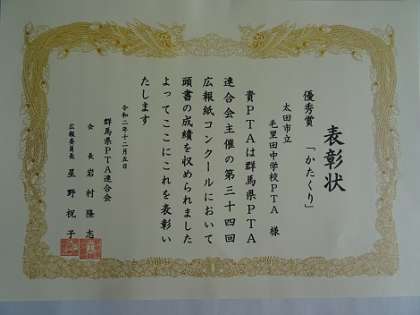 表彰状
優秀賞 「かたくり」
太田市立
毛里田中学校PTA 様
貴PTAは群馬県PTA
連合会主催の第三十四回
広報紙コンクールにおいて
頭書の成績を収められました
よってここにこれを表彰い
たします
令和二年十二月五日
群馬県PTA連合会
会長 岩村隆志
広報委員長 星野祝子